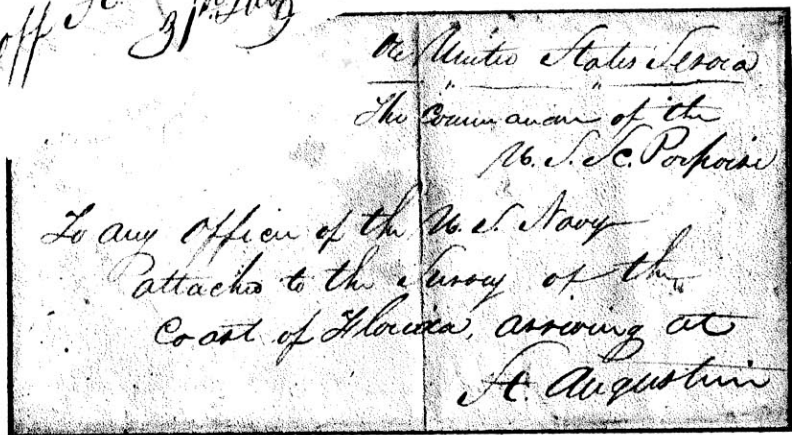 off
31st
On United States Service
The Commander of the
U. S. Sc. Porpoise
To any Officer of the U. S. Navy
attached to the Survey of the
Coast of Florida, arriving at
St. Augustin